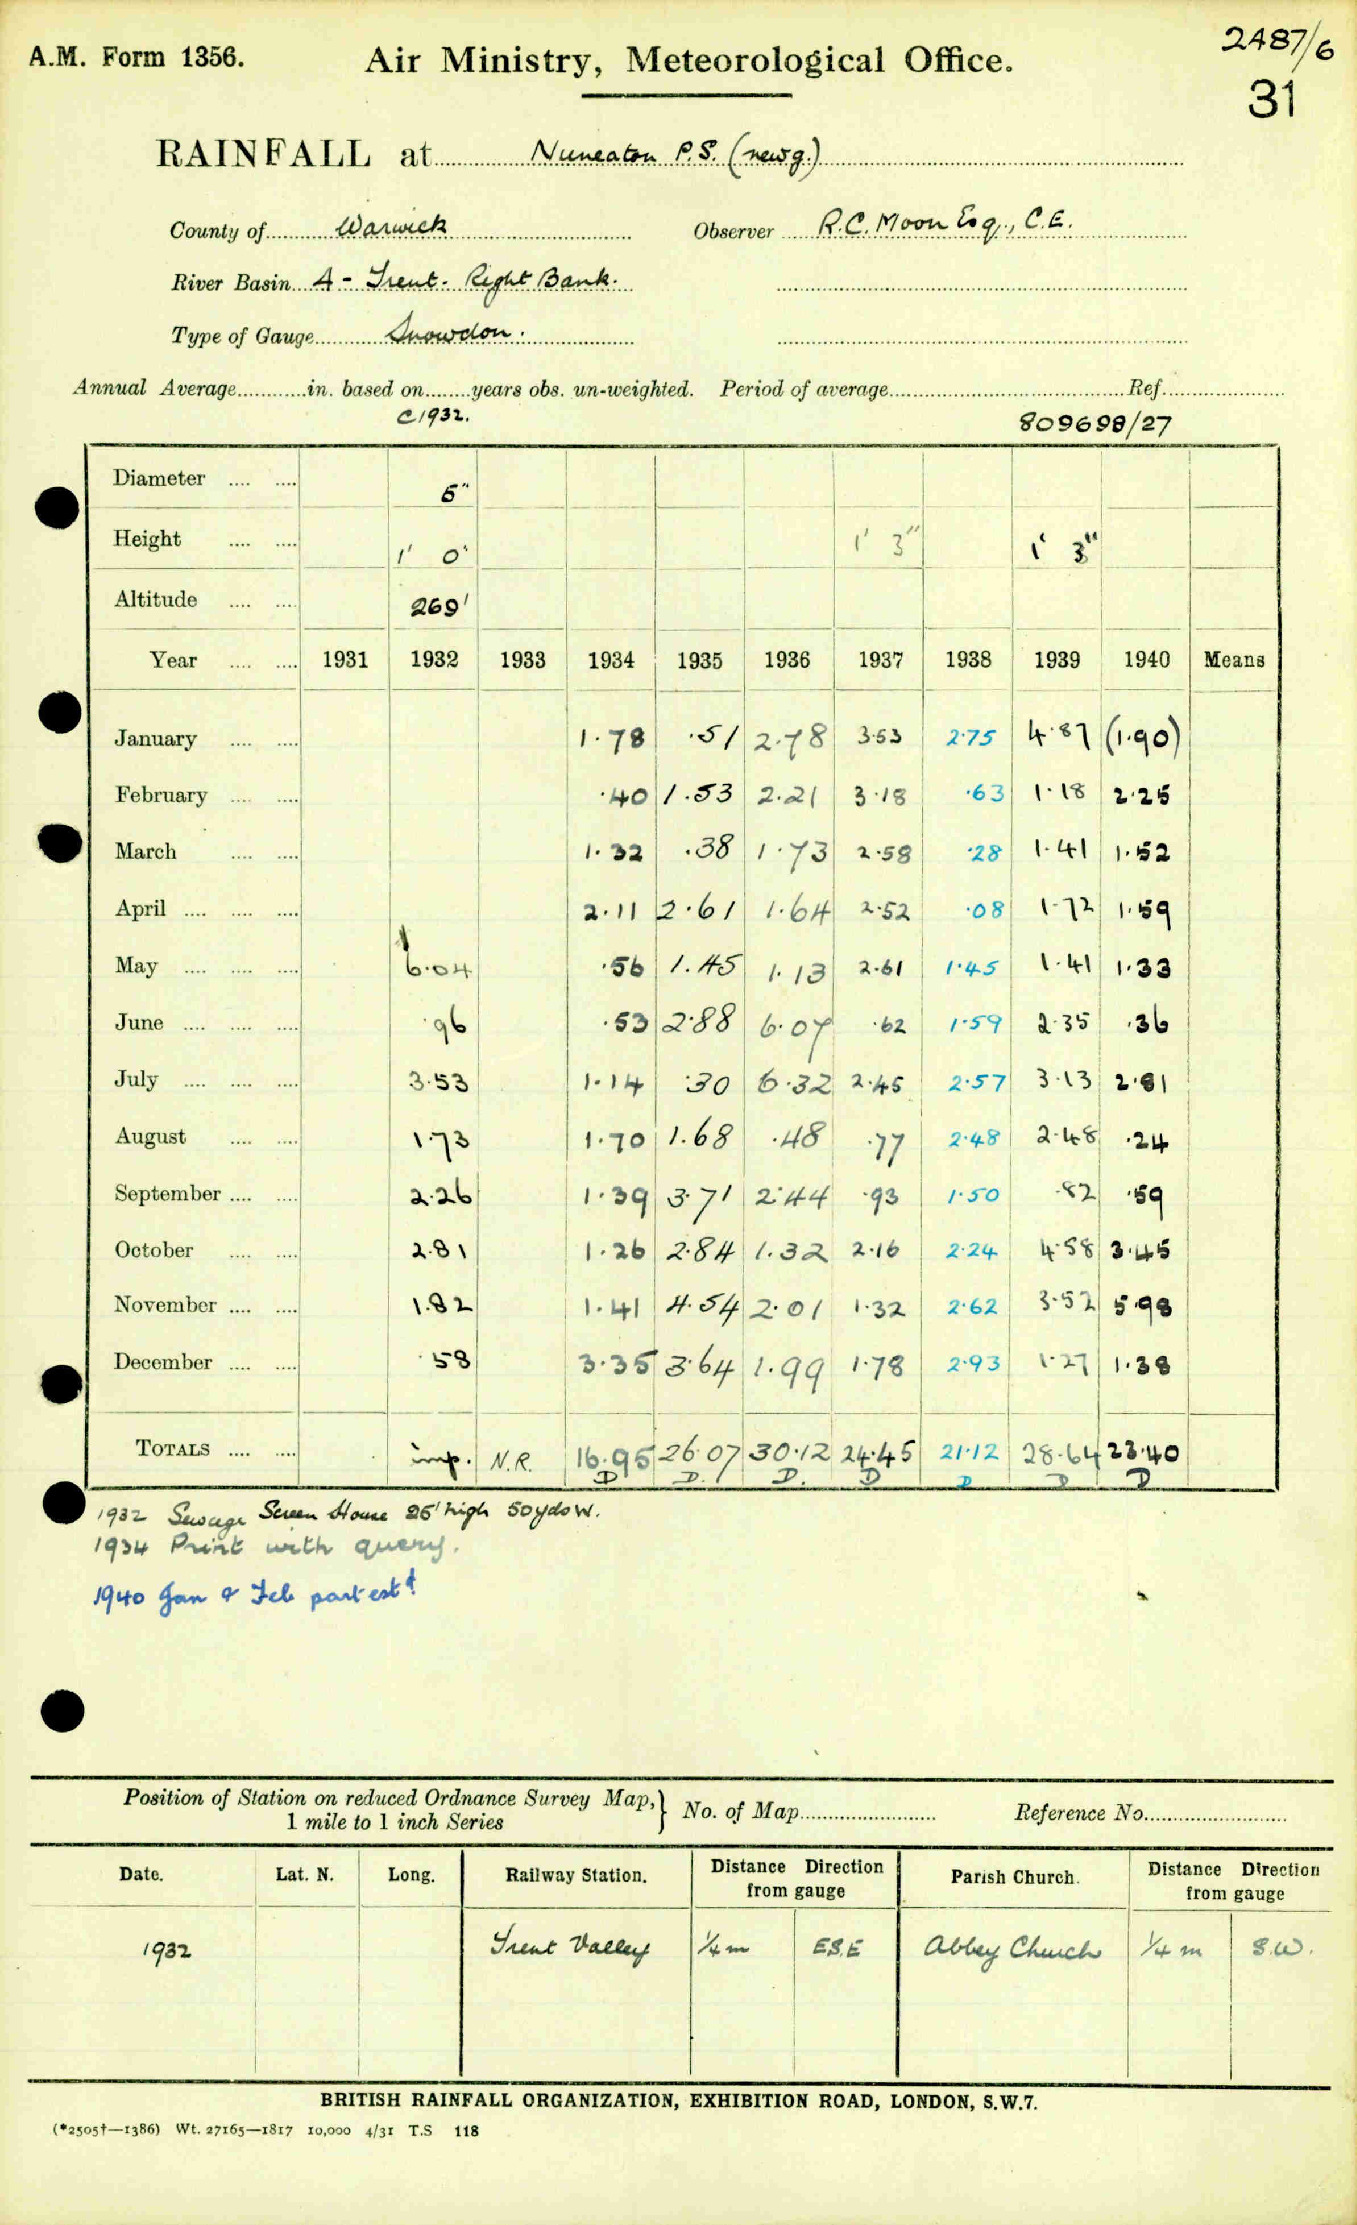 2487/6
A.M. Form 1356. Air Ministry, Meteorological Office.
31
RAINFALL at Nuneaton P.S. (new g.)
County of Warwick Observer R.C. Moon Esq., C.E.
River Basin 4 - Trent. Right Bank.
Type of Gauge Snowdon.
Annual Average in. based on years obs. un-weighted. Period of average Ref.
C1932. 809698/27
Diameter 5"
Height 1' 0" 1' 3" 1' 3"
Altitude 269'
Year 1931 1932 1933 1934 1935 1936 1937 1938 1939 1940 Means
January 1.78 .51 2.78 3.53 2.75 4.87 (1.90)
February .40 1.53 2.21 3.18 .63 1.18 2.25
March 1.32 .38 1.73 2.58 .28 1.41 1.52
April 2.11 2.61 1.64 2.52 .08 1.72 1.59
May 6.04 .56 1.45 1.13 2.61 1.45 1.41 1.33
June .96 .53 2.88 6.07 .62 1.59 2.35 .36
July 3.53 1.14 .30 6.32 2.45 2.57 3.13 2.81
August 1.73 1.70 1.68 .48 .77 2.48 2.48 .24
September 2.26 1.39 3.71 2.44 .93 1.50 .82 .59
October 2.81 1.26 2.84 1.32 2.16 2.24 4.58 3.45
November 1.82 1.41 4.54 2.01 1.32 2.62 3.52 5.98
December .58 3.35 3.64 1.99 1.78 2.93 1.27 1.38
TOTALS imp. N.R. 16.95 26.07 30.12 24.45 21.12 28.64 23.40
D D. D. D D D D
1932 Sewage Screen House 25' high 50yds W.
1934 Print with query.
1940 Jan & Feb part estd
Position of Station on reduced Ordnance Survey Map,} No. of Map Reference No.
1 mile to 1 inch Series
Date. Lat. N. Long. Railway Station. Distance Direction from gauge Parish Church. Distance Direction from gauge
1932 Trent Valley 1/4 m ESE Abbey Church 1/4 m S.W.
BRITISH RAINFALL ORGANIZATION, EXHIBITION ROAD, LONDON, S.W.7.
(*2505†—1386) Wt. 27165—1817 10,000 4/31 T.S 118